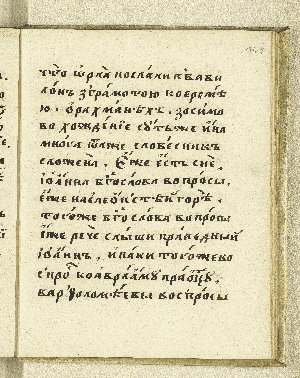 что ѡрлъ послали въ вави
лонъ з грамотою ко ереми
ю. ѡ рахманѣхъ. зосимо
во хожденїе сꙋтьже и ина
многа ꙗже словесникъ
сложена, Еже есть сие
іѡанна бг҃ослова вопросы,
еже на елеонстѣй горѣ.
тогоже бг҃ослова вопросы
иже рече слыши праведный
іѡанне, и паки тогожево
спро ко авраамꙋ праѡцꙋ,
варѳоломѣевы вопросы